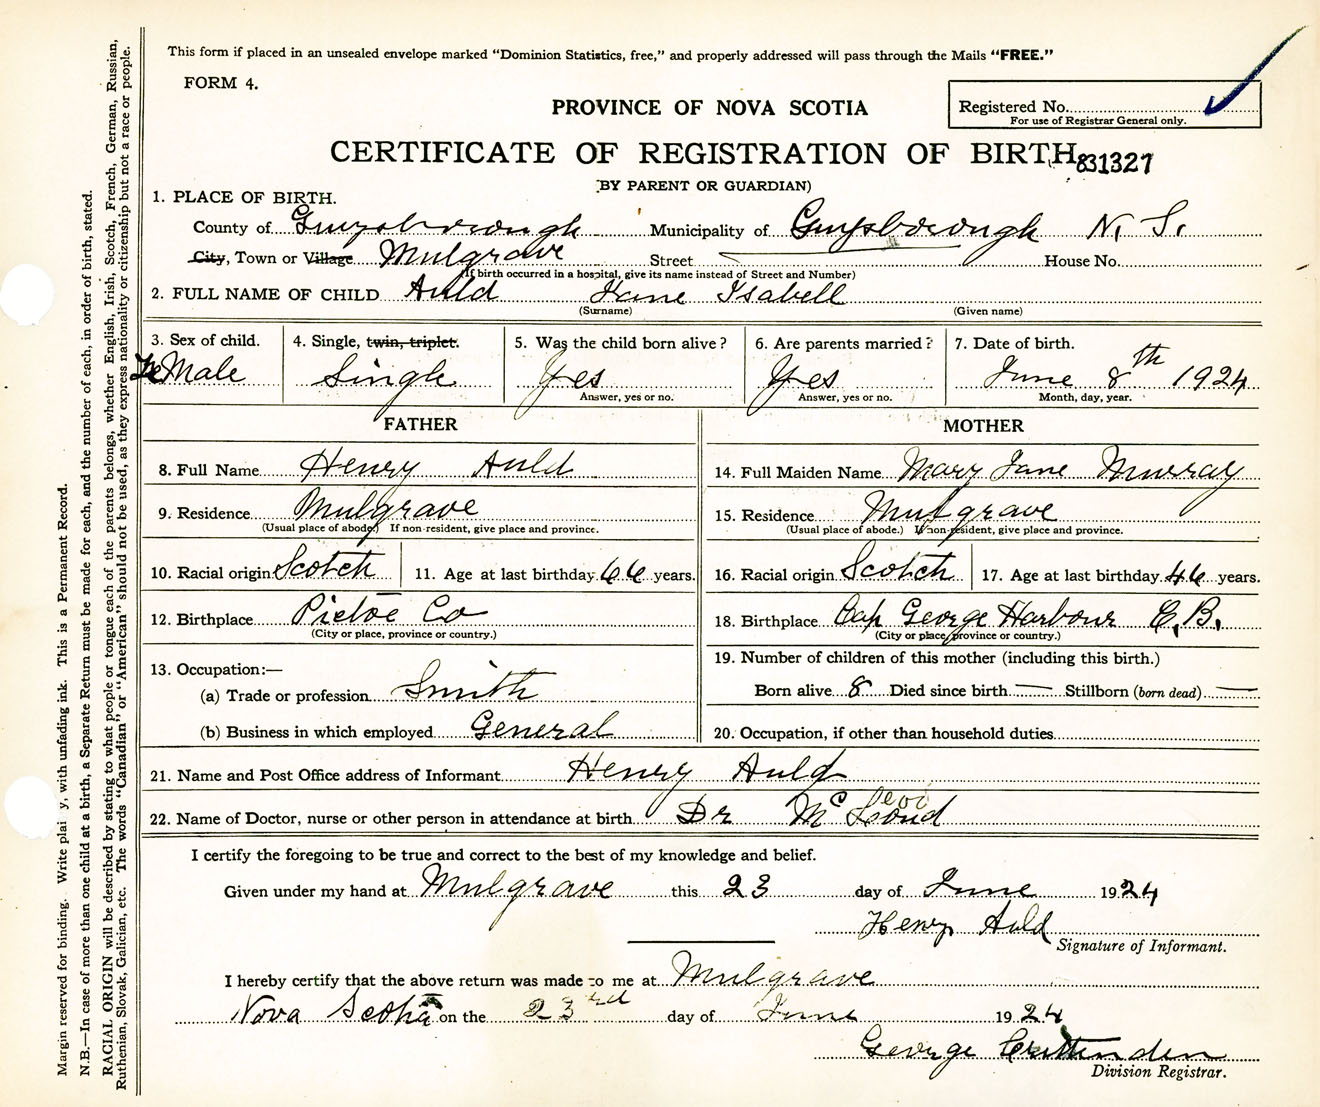 This form if placed in an unsealed envelope marked "Dominion Statistics, free," and properly addressed will pass through the Mails "FREE."
FORM 4.
PROVINCE OF NOVA SCOTIA
Registered No.
For use of Registrar General only.
CERTIFICATE OF REGISTRATION OF BIRTH 831327
(BY PARENT OR GUARDIAN)
1. PLACE OF BIRTH.
County of Guysborough Municipality of Guysborough N. S.
City, Town or Village Mulgrave Street House No.
(If birth occurred in a hospital, give its name instead of Street and Number)
2. FULL NAME OF CHILD Auld Jane Isabell
(Surname) (Given name)
3. Sex of child. 4. Single, twin, triplet. 5. Was the child born alive? 6. Are parents married? 7. Date of birth.
FeMale Single Yes Yes June 8th 1924
Answer, yes or no. Answer, yes or no. Month, day, year.
FATHER MOTHER
8. Full Name Henry Auld 14. Full Maiden Name Mary Jane Murray
9. Residence Mulgrave 15. Residence Mulgrave
(Usual place of abode) If non-resident, give place and province. (Usual place of abode.) If non-resident, give place and province.
10. Racial origin Scotch 11. Age at last birthday 66 years. 16. Racial origin Scotch 17. Age at last birthday 46 years.
12. Birthplace Pictoe Co 18. Birthplace Cap George Harbour C.B.
(City or place, province or country.) (City or place, province or country.)
13. Occupation:— 19. Number of children of this mother (including this birth.)
(a) Trade or profession Smith Born alive 8 Died since birth — Stillborn (born dead) —
(b) Business in which employed General 20. Occupation, if other than household duties
21. Name and Post Office address of Informant Henry Auld
22. Name of Doctor, nurse or other person in attendance at birth Dr
I certify the foregoing to be true and correct to the best of my knowledge and belief.
Given under my hand at Mulgrave this 23 day of June 1924
Henry Auld
Signature of Informant.
I hereby certify that the above return was made to me at Mulgrave
Nova Scotia on the 23rd day of June 1924
George Crittenden
Division Registrar.
Margin reserved for binding. Write plai y, with unfading ink. This is a Permanent Record.
N.B.—In case of more than one child at a birth, a Separate Return must be made for each, and the number of each, in order of birth, stated.
RACIAL ORIGIN will be described by stating to what people or tongue each of the parents belongs, whether English, Irish, Scotch, French, German, Russian,
Ruthenian, Slovak, Galician, etc. The words "Canadian" or "American" should not be used, as they express nationality or citizenship but not a race or people.